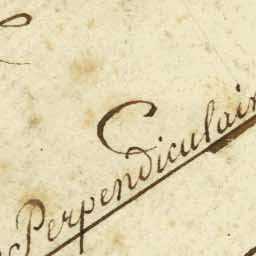 C
Perpendiculair